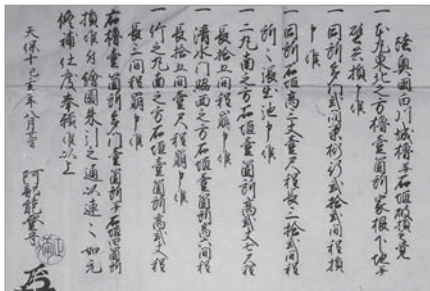 陸奥国白川城櫓并石垣破損之覚
一 本丸東北之方櫓壱箇所家根下地并
壁共損申候
一 同所多門弐間梁桁行弐拾弐間程損
申候
一 同所石垣高三丈壱尺程長三拾弐間程
所々張出申候
一 二ノ丸南之方石垣壱箇所高弐丈七尺程
長拾五間程崩申候
一 清水門脇西之方石垣壱箇所高六間程
長拾五間壱尺程崩申候
一 竹之丸南之方石垣壱箇所高弐丈程
長三間程崩申候
右櫓壱箇所多門壱箇所并石垣四箇所
損候付絵図朱引之通以連々如元
修補仕度奉願候以上
天保十二年八月 阿部能登守